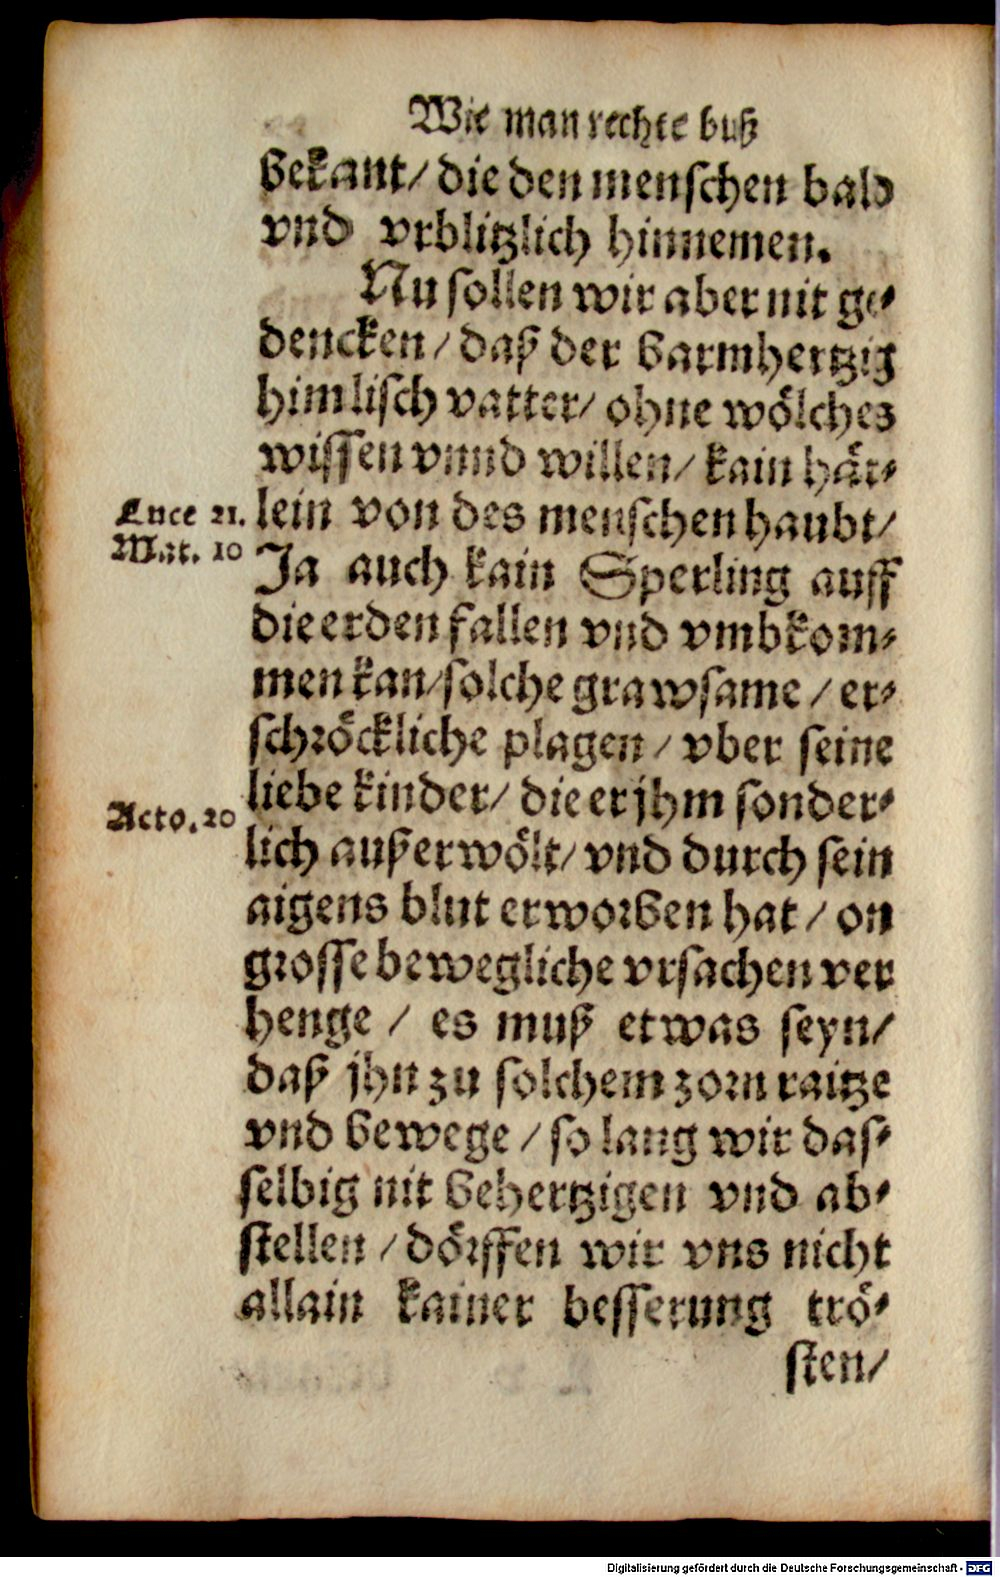 Wie man rechte buß
bekant/ die den menschen bald
vnd vrblitzlich hinnemen.
Nu sollen wir aber nit ge⸗
dencken/ daß der barmhertzig
himlisch vatter/ ohne wölches
wissen vnnd willen/ kain här⸗
Luce 21. lein von des menschen haubt/
Mat. 10 Ja auch kain Sperling auff
die erden fallen vnd vmbkom⸗
men kan/ solche grawsame/ er⸗
schröckliche plagen/ vber seine
liebe kinder/ die er jhm sonder⸗
Acto. 20 lich außerwölt/ vnd durch sein
aigens blut erworben hat/ on
grosse bewegliche vrsachen ver
henge/ es muß etwas seyn/
daß jhn zu solchem zorn raitze
vnd bewege/ so lang wir das⸗
selbig nit behertzigen vnd ab⸗
stellen/ dörffen wir vns nicht
allain kainer besserung trö⸗
sten/
Digitalisierung gefördert durch die Deutsche Forschungsgemeinschaft - DFG